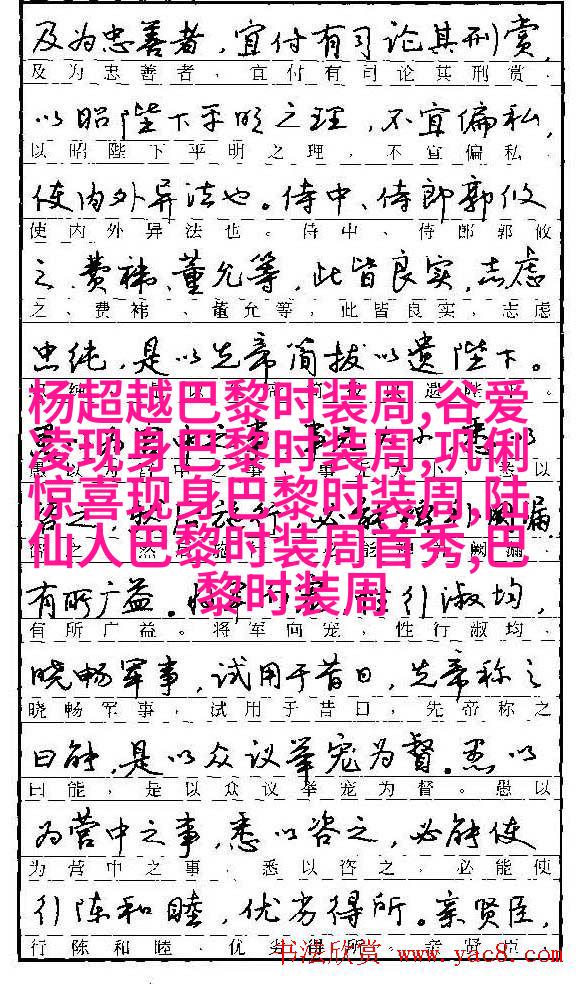 及为忠善者，宜付有司论其刑赏，
及为忠善者，宜付有司论其刑赏．
以昭陛下平明之理，不宜偏私，
以昭陛下平明之理，不宜偏私．
使内外异法也。侍中、侍郎郭攸
使内外异法也。侍中、侍郎郭攸
之、费祎、董允等，此皆良实，志虑
之、费祎、董允等，此皆良实，志虑
忠纯，是以先帝简拔以遗陛下。
杨超越巴黎时装周,谷爱
凌现身巴黎时装周,巩俐
惊喜现身巴黎时装周,陆
仙人巴黎时装周首秀,巴
黎时装周
有所广益。 行淑均，
有所广益。将军向宠，性行淑均．
晓畅军事，试用于昔日，先帝称之
晓畅军事，试用于昔日，先帝称之
曰能，是以众议举宠为督。愚以
曰能，是以众议举宠为督。愚以
为营中之事，悉以咨之，必能使
为营中之事．悉以咨之，必能使
行阵和睦，优劣得所。亲贤臣，
行陈和睦．优劣得所
书法欣赏 www.yac8.com